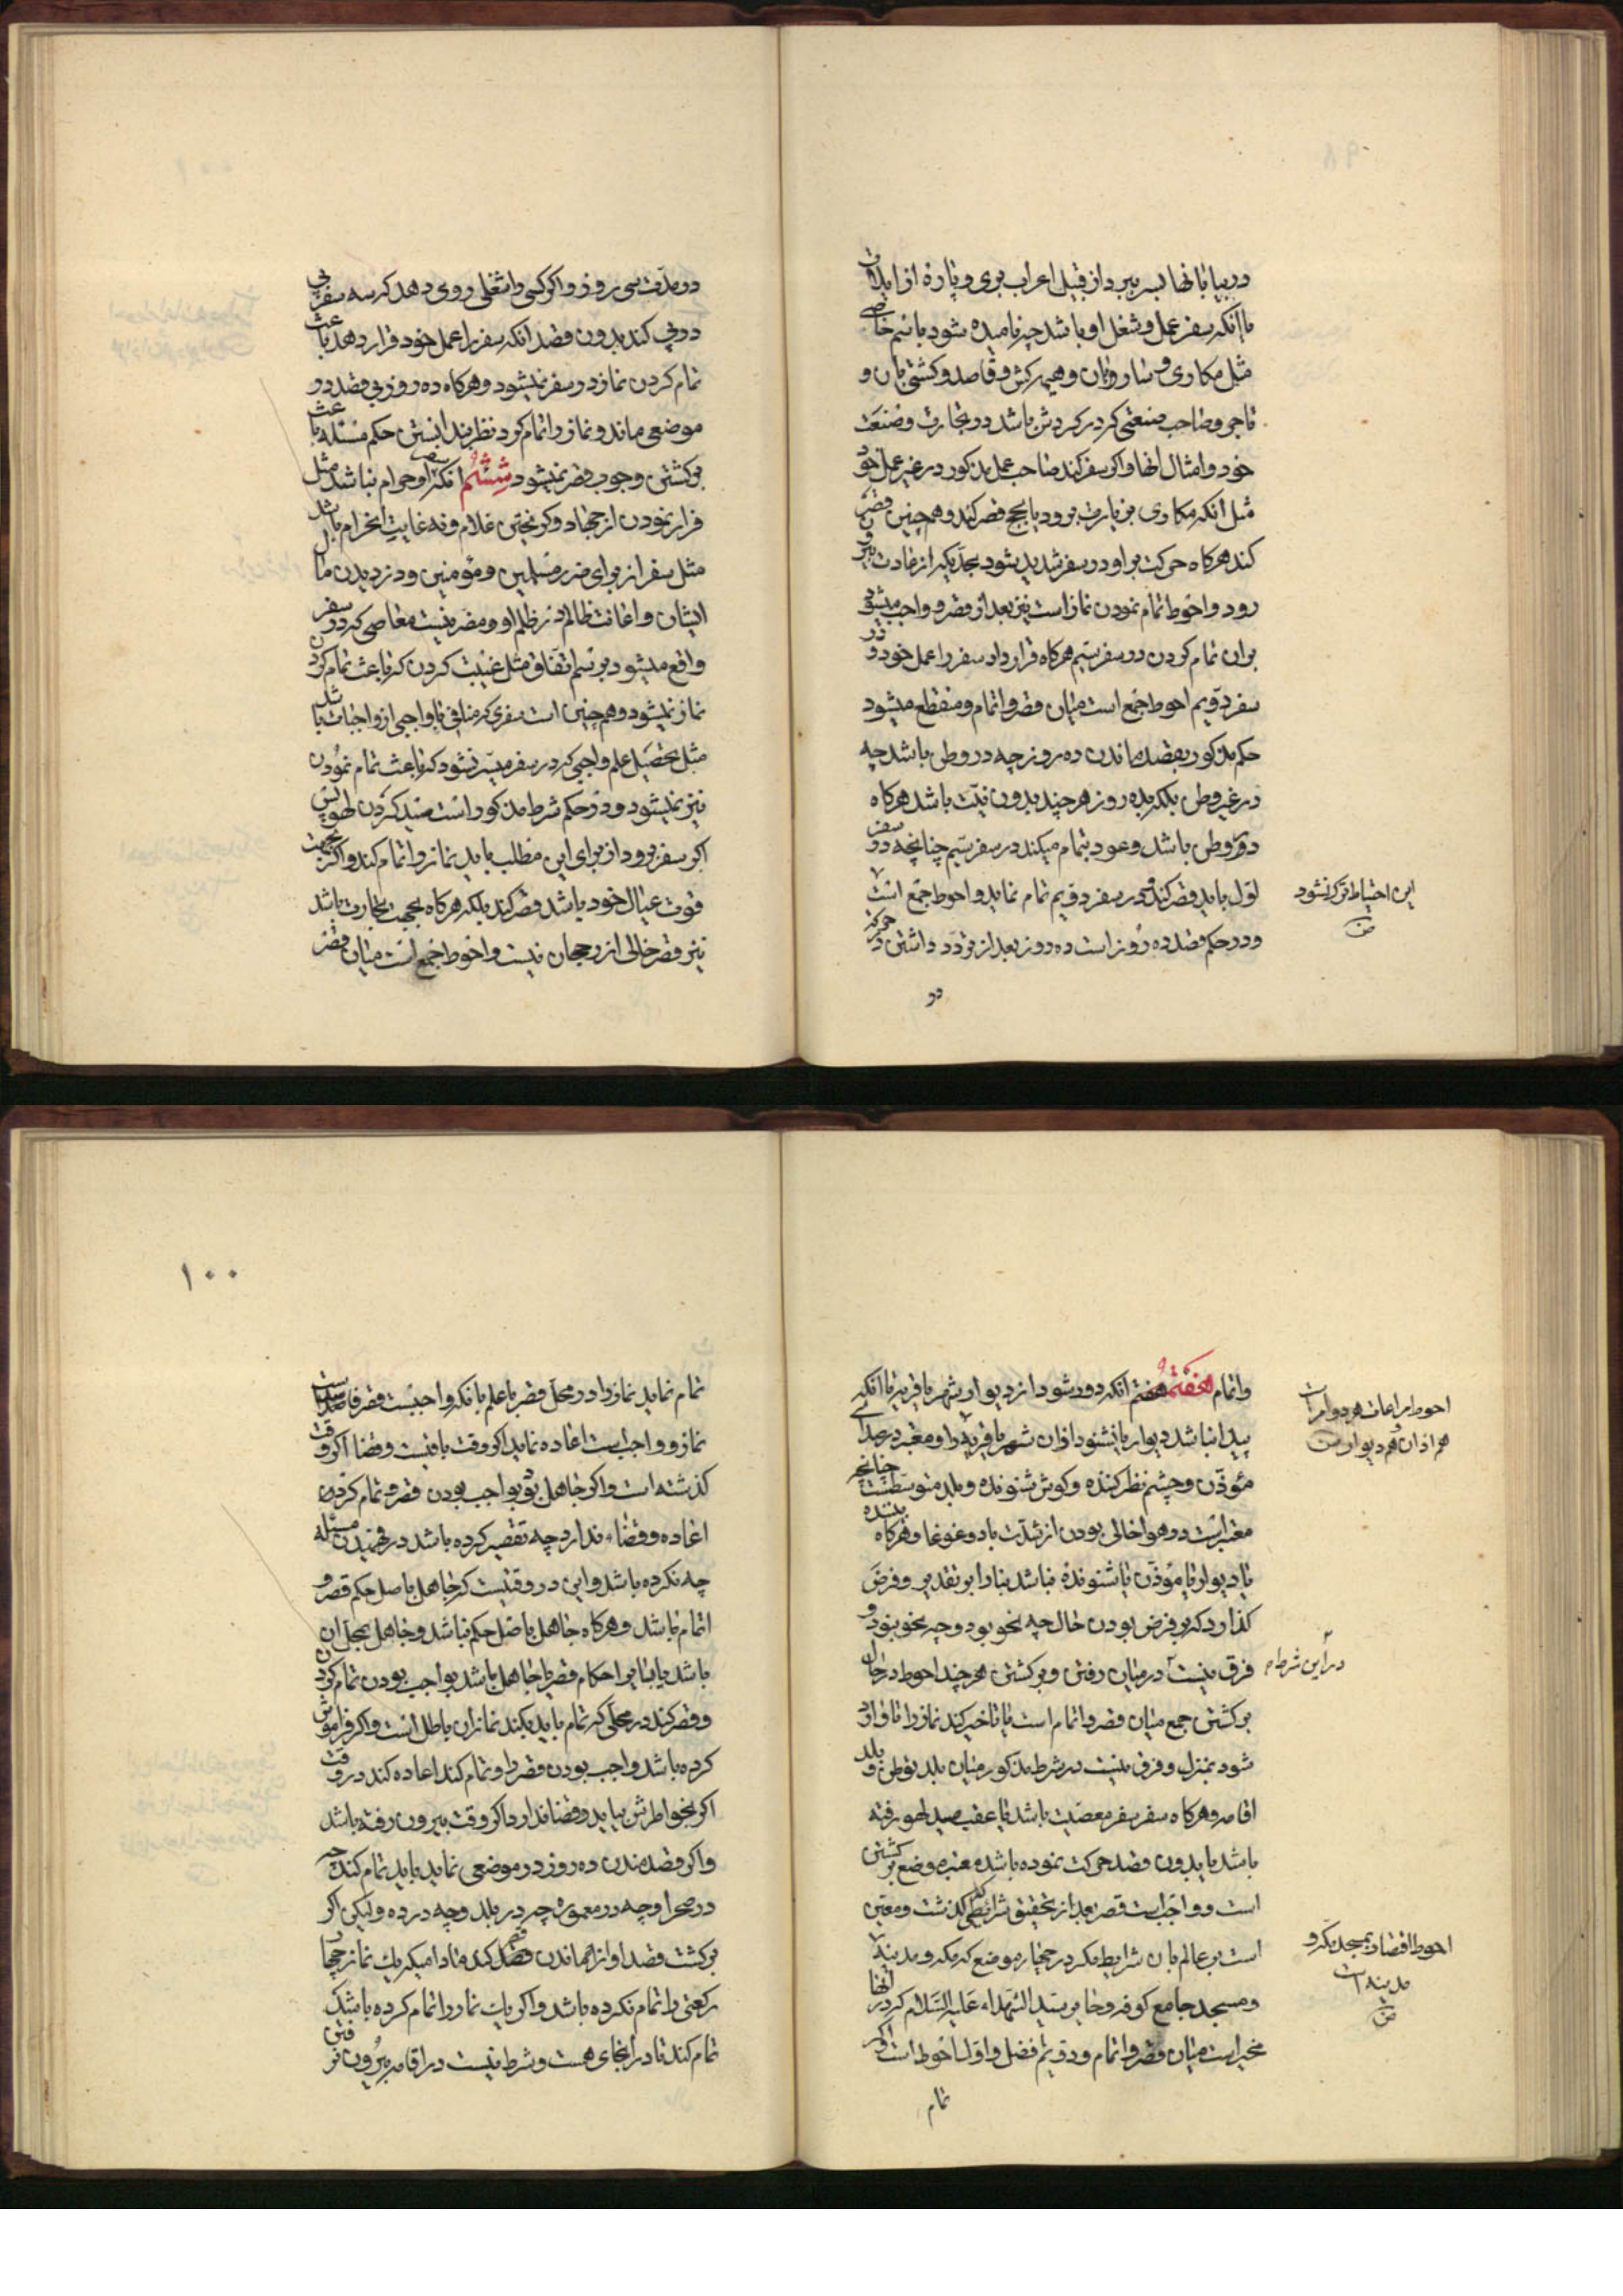 در بیابانها بسر ببرد از قبیل اعراب بری و پاره از ایلات
یا آنکه سفر عمل و شغل او باشد چه نامیده شود باسم خاصی
مثل مکاری و ساروان و هیمه کش و قاصد و کشتی بان و
تاجر و صاحب صنعتی که در کردش باشد در تجارت و صنعت
خود و امثال انها و اکر سفر کند صاحب عمل مذکور در غیر عمل خود
مثل انکه مکاری بزیارت برود یا بحج قصر کند و همچنین قصر
کند هرکاه حرکت بر او در سفر شدید بشود بحدیکه از عادت بیرون
رود و احوط تمام نمودن نماز است نیز بعد از قصر و واجب میشود
بران تمام کردن در سفر سیم هرکاه قرار داد سفر را عمل خود و در
سفر دویم احوط جمع است میان قصر و اتمام و منقطع میشود
حکم مذکور بقصد ماندن ده روز چه در وطن باشد چه
در غیر وطن بلکه بده روز هر چند بدون نیت باشد هرکاه
در وطن باشد و عود بتمام میکند در سفر سیم چنانچه در سفر
اول باید قصر کند و در سفر دویم تمام نماید و احوط جمع است
و در حکم قصد ده روز است ده روز بعد از تردد داشتن
در
این احتیاط ترک نشود
در مدت سی روز و اکر کسی را شغلی روی دهد که سه سفر پی
در پی کند بدون قصد انکه سفر را عمل خود قرار دهد باعث
تمام کردن نماز در سفر نمیشود و هرکاه ده روز بی قصد در
موضعی ماند و نماز را تمام کرد نظر بندانستن حکم مسئله باعث
برکشتن وجوب قصر نمیشود ششم انکه سفر او حرام نباشد مثل
فرار نمودن از جهاد و کریختن غلام و نه غایت ان حرام باشد
مثل سفر از برای ضرر مسلمین و مؤمنین و دزدیدن مال
ایشان و اعانت ظالم در ظلم او و مضر نیست معاصی که در سفر
واقع میشود برسم اتفاق مثل غیبت کردن که باعث تمام کردن
نماز نمیشود و همچنین است سفری که منافی با واجبی از واجبات باشد
مثل تحصیل علم واجبی که در سفر میسر نشود که باعث تمام نمودن
نیز نمیشود و در حکم شرط مذکور است صید کردن لهو پس
اکر سفر برود از برای این مطلب باید نماز را تمام کند و اکر بجهت
قوت عیال خود باشد قصر کند بلکه هرکاه بجهت تجارت باشد
نیز قصر خالی از رجحان نیست و احوط جمع است میان قصر
واتمام هفتم هفتم انکه دور شود از دیوار شهر یا قریه تا انکه
پیدا نباشد دیوار یا نشنود اذان شهر یا قریه را و معتبر در صدای
مؤذن و چشم نظر کننده و کوش شنونده و بلد متوسط است چنانچه
معتبر است در هوا خالی بودن از شدت باد و غوغا و هرکاه بیننده
یا دیوار یا مؤذن یا شنونده نباشد بنا را بر تقدیر و فرض
کذارد که بر فرض بودن حال چه نحو بود و چه نحو نبود و
فرق نیست در میان رفتن و برکشتن هر چند احوط در حال
برکشتن جمع میان قصر و اتمام است یا تاخیر کند نماز را تا وارد
شود بمنزل و فرق نیست در شرط مذکور میان بلد توطن و بلد
اقامه و هرکاه سفر سفر معصیت باشد یا عقب صید لهو رفته
باشد یا بدون قصد حرکت نموده باشد معتبر موضع برکشتن
است و واجب است قصر بعد از تحقیق شرائطی که کذشت و معین
است بر عالم بان شرایط مکر در چهار موضع که مکه و مدینه
و مسجد جامع کوفه و حایر سید الشهداء علیه السلام که در انها
مخیر است میان قصر و اتمام و دویم افضل و اول احوط است و اکر
تمام
احوط مراعات هر دو امر است
هم اذان هم دیوار
در این شرط
احوط اقتصار بمسجد مکه و
مدینه است
۱۰۰
تمام نماید نماز را در محل قصر با علم بانکه واجبست قصر فاسد است
نماز و واجب است اعاده نماید اکر وقت باقیست و قضا اکر وقت
کذشته است و اکر جاهل بود بواجب بودن قصر و تمام کرده
اعاده و قضاء ندارد چه تقصیر کرده باشد در فهمیدن مسئله
چه نکرده باشد و این در وقتیست که جاهل باصل حکم قصر و
اتمام باشد و هرکاه جاهل باصل حکم نباشد و جاهل بمحل ان
باشد یا بنابر احکام قصر یا جاهل باشد بواجب بودن تمام کردن
و قصر کند در محلی که تمام باید بکند نماز ان باطل است و اکر فراموش
کرده باشد واجب بودن قصر را و تمام کند اعاده کند در وقت
اکر بخواطرش بیاید و قضا ندارد اکر وقت بیرون رفته باشد
و اکر قصد مندن ده روز در موضعی نماید باید تمام کند چه
در صحرا و چه در معموره چه در بلد و چه در ده ولیکن اکر
برکشت قصد او از ماندن قصد کند مادامیکه یک نماز چهار
رکعتی را تمام نکرده باشد و اکر یک نماز را تمام کرده باشد
تمام کند تا در انجای هست و شرط نیست در اقامه بیرون نرفتن